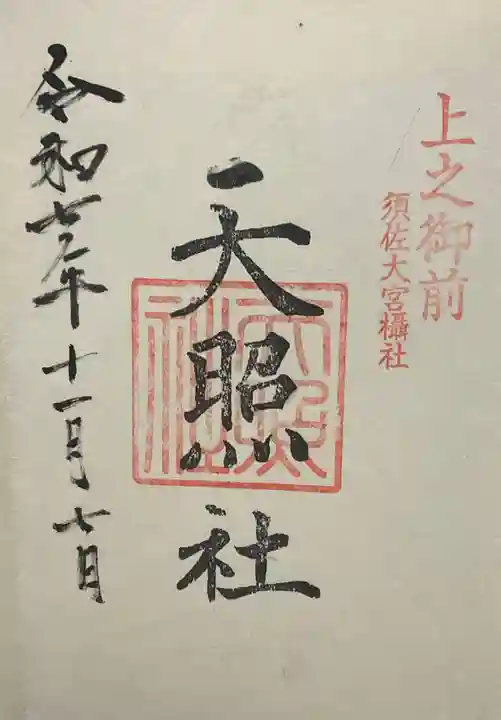 上之御前
須佐大宮攝社
天照社
令和七年十一月七日